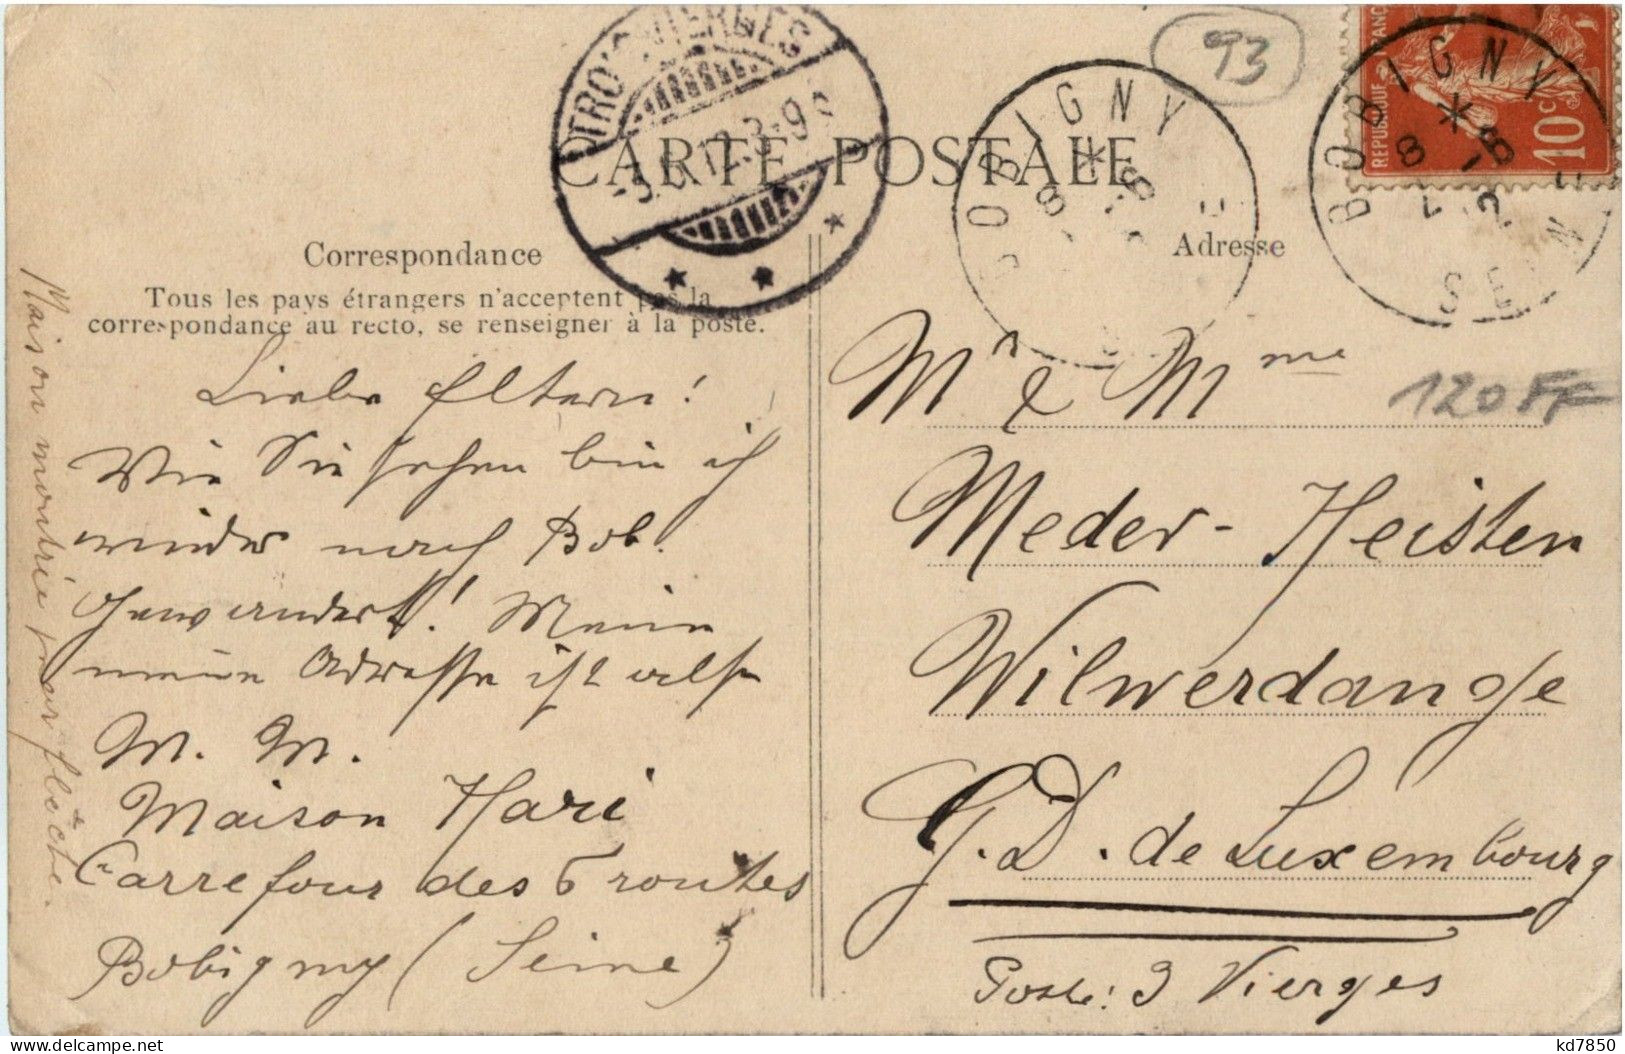 93
TRO'SVIERGES
-9.8.12.3-9
BOBIGNY
8 *
8
BOBIGNY
SEINE
8 * -8
12
REPUBLIQUE
10c
CARTE POSTALE
Correspondance
Adresse
Tous les pays étrangers n'acceptent pas la
correspondance au recto, se renseigner à la poste.
Liebe Eltern!
Wie Sie sehen bin ich
wieder nach Bob.
gewandert! Meine
meine Adresse ist also
M. M.
Maison Hari
Carrefour des 6 routes
Bobigny (Seine)
Maison montrée par flèche.
Mr & Mme
120 FF
Meder-Heisten
Wilwerdange
G. D. de Luxembourg
Poste: 3 Vierges
kd7850